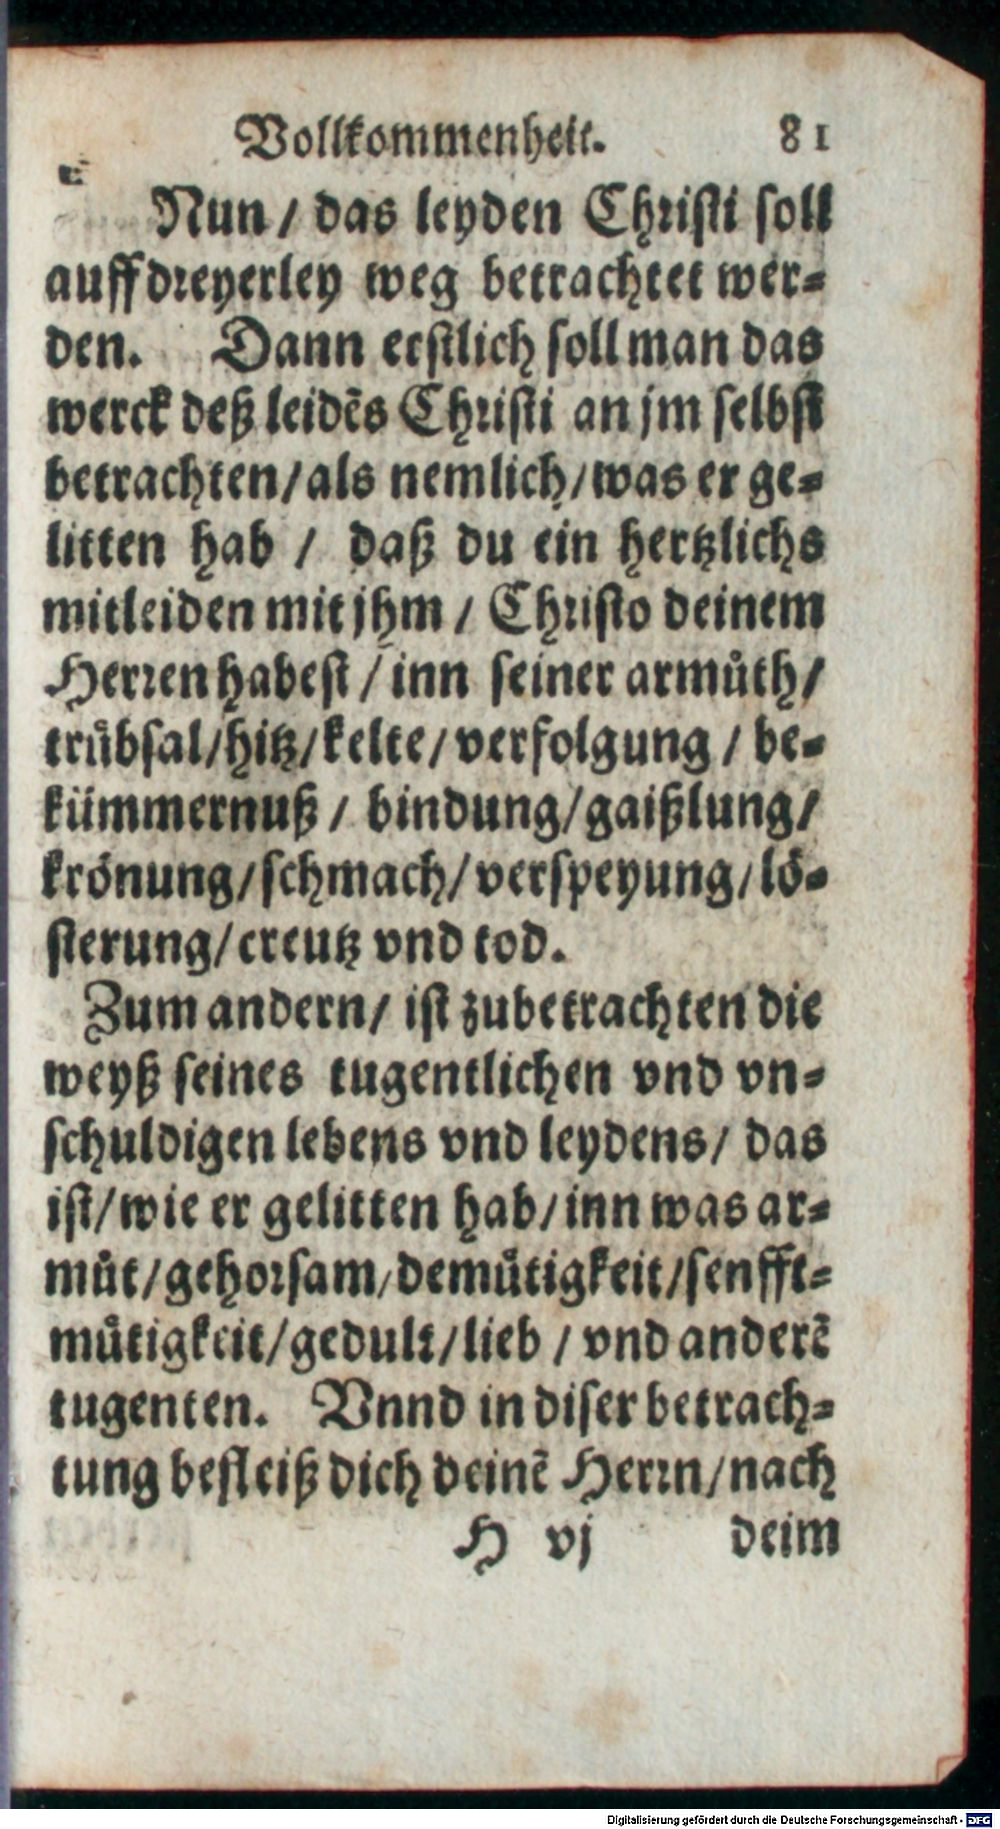 Vollkommenheit. 81
Nun / das leyden Christi soll
auff dreyerley weg betrachtet wer-
den. Dann erstlich soll man das
werck deß leidēs Christi an jm selbst
betrachten / als nemlich / was er ge-
litten hab / daß du ein hertzlichs
mitleiden mit jhm / Christo deinem
Herren habest / inn seiner armůth /
trůbsal / hitz / kelte / verfolgung / be-
kümmernuß / bindung / gaißlung /
krönung / schmach / verspeyung / lö-
sterung / creutz vnd tod.
Zum andern / ist zubetrachten die
weyß seines tugentlichen vnd vn-
schuldigen lebens vnd leydens / das
ist / wie er gelitten hab / inn was ar-
můt / gehorsam / demůtigkeit / senfft-
můtigkeit / gedult / lieb / vnd anderē
tugenten. Vnnd in diser betrach-
tung befleiß dich deinē Herrn / nach
H vj deim
Digitalisierung gefördert durch die Deutsche Forschungsgemeinschaft - DFG